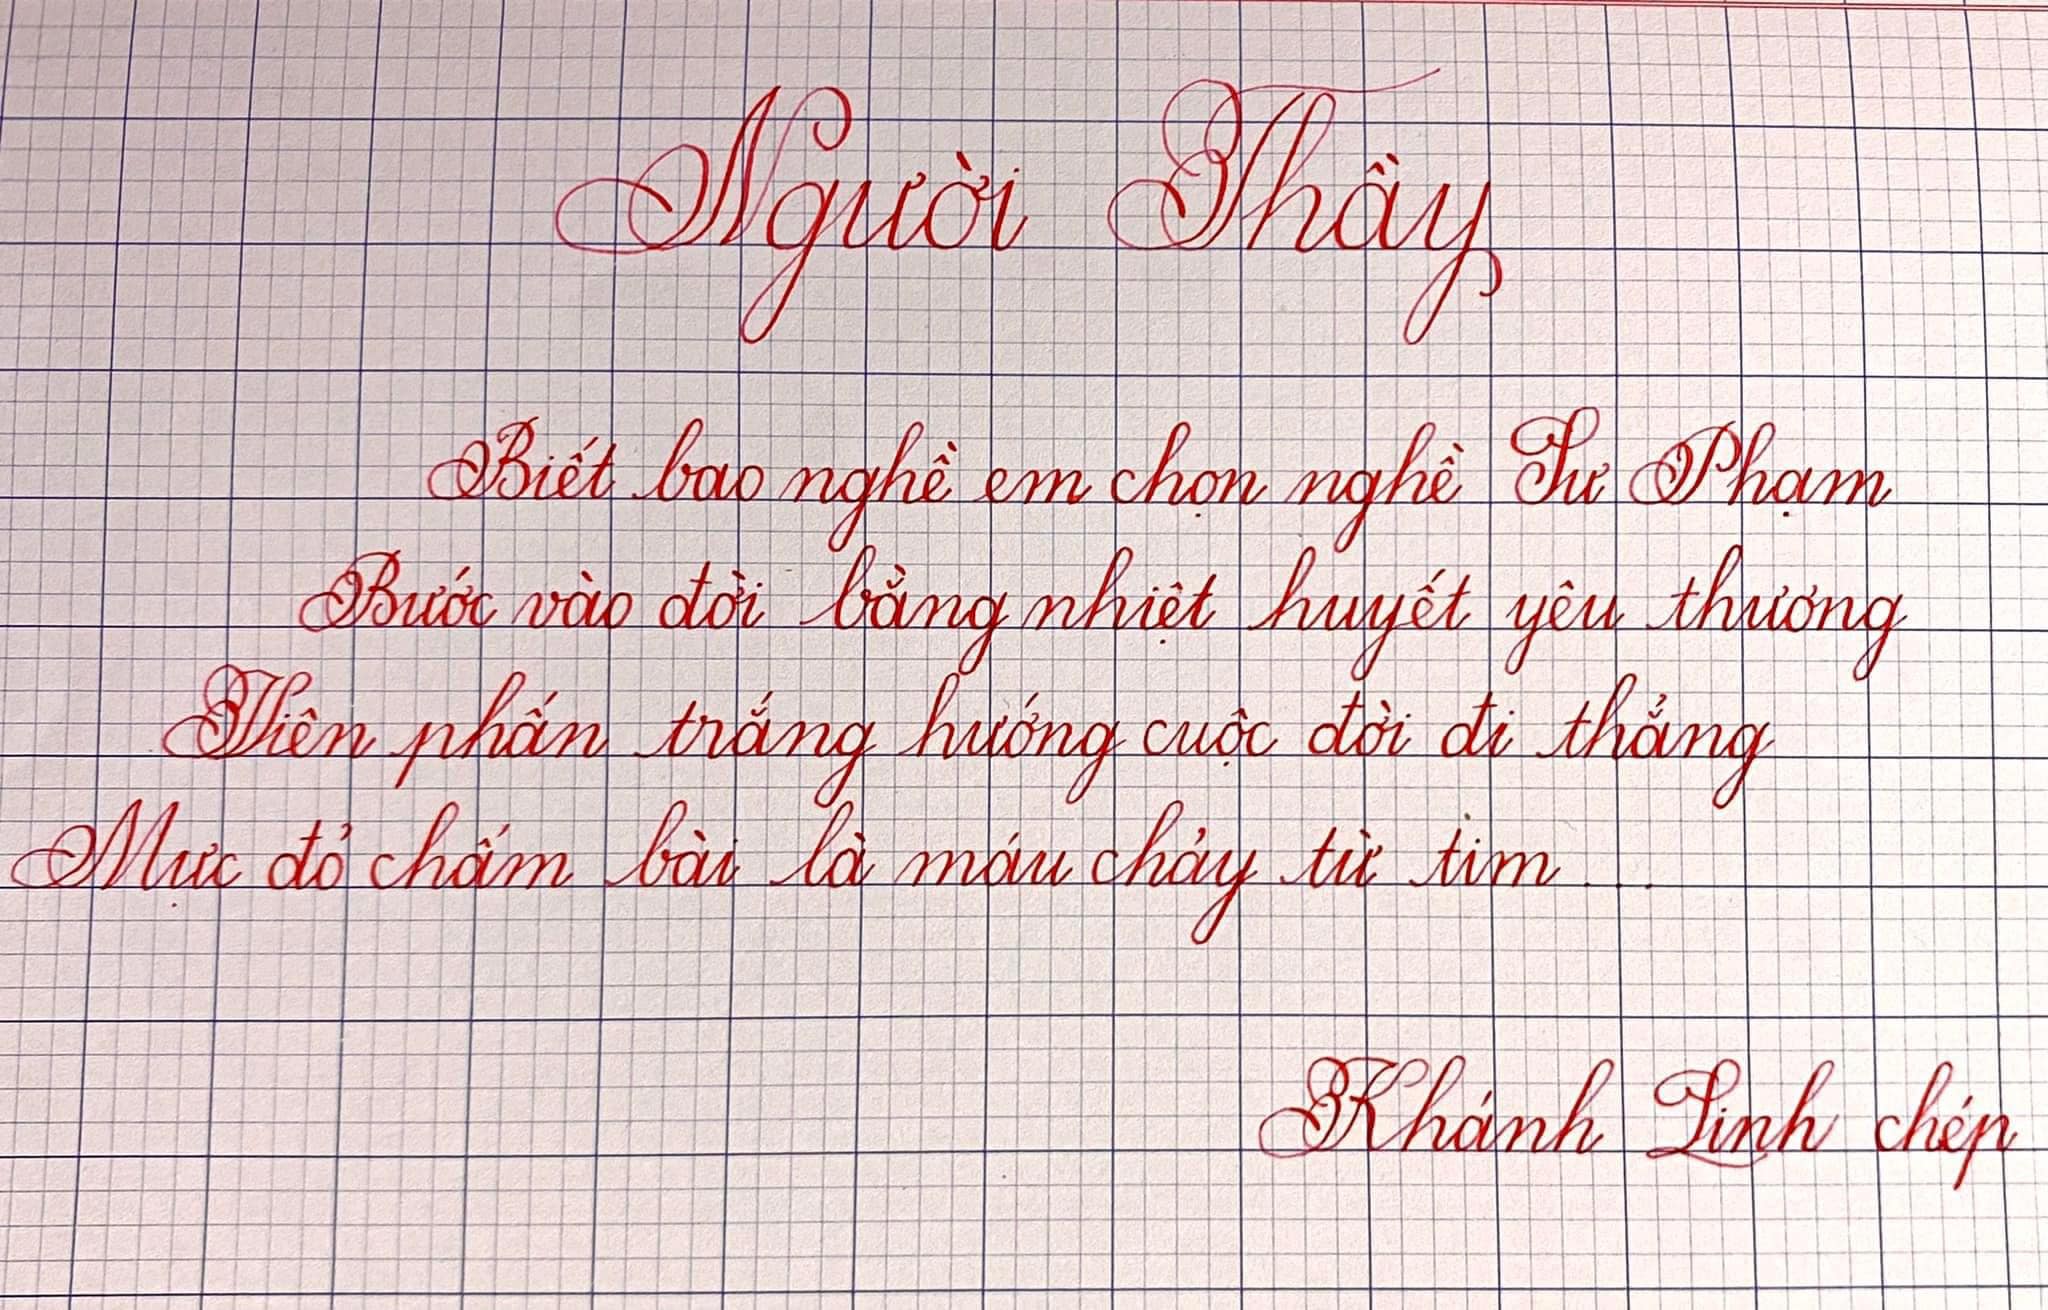 Người Thầy
Biết bao nghề em chọn nghề Sư Phạm
Bước vào đời bằng nhiệt huyết yêu thương
Viên phấn trắng hướng cuộc đời đi thẳng
Mực đỏ chấm bài là máu chảy từ tim ...
Khánh Linh chép